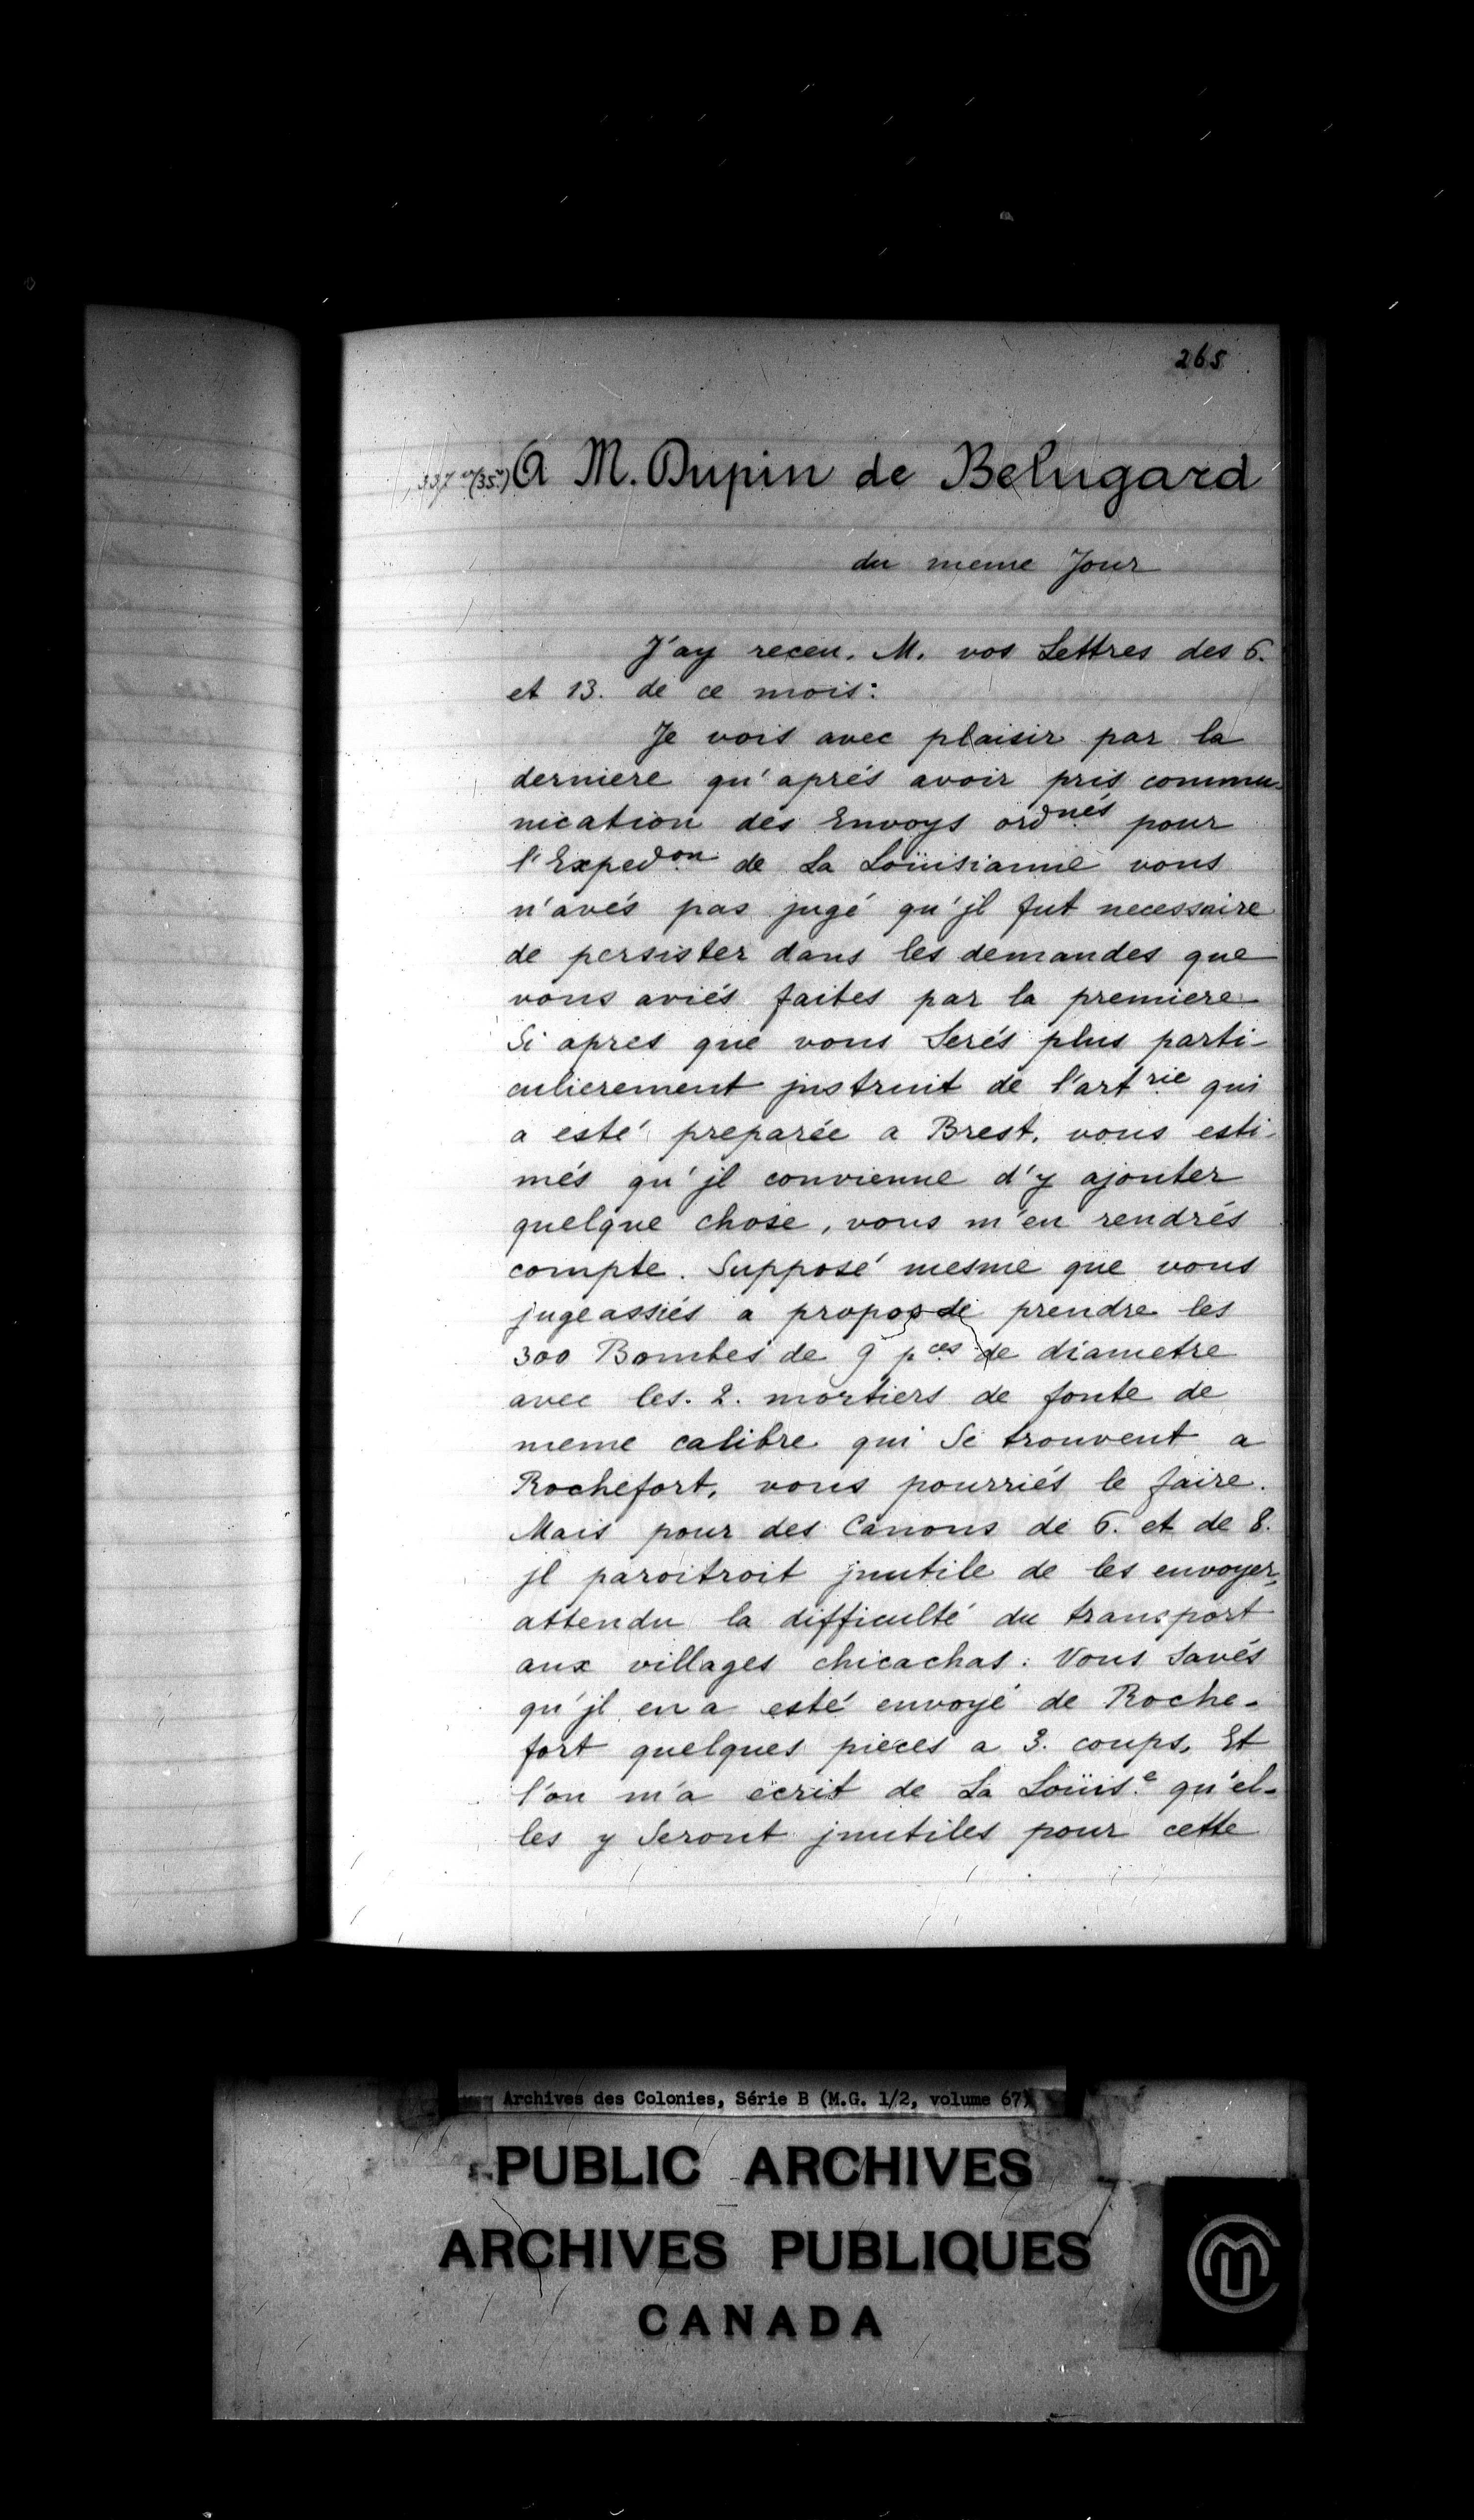 265
A M. Dupin de Belugard
du meme Jour
J'ay receu. M. vos Lettres des 6.
et 13. de ce mois:
Je vois avec plaisir par la
derniere qu'aprés avoir pris commu-
nication des Envoys ordnés pour
l'Expedon de La Loüisianne vous
n'avés pas jugé qu'jl fut necessaire
de persister dans les demandes que
vous aviés faites par la premiere
Si apres que vous Serés plus parti-
culierement jnstruit de l'artrie qui
a esté preparée a Brest, vous esti-
més qu'jl convienne d'y ajouter
quelque chose, vous m'en rendrés
compte. Supposé mesme que vous
jugeassiés a propos de prendre les
300 Bombes de 9 pces de diametre
avec les. 2. mortiers de fonte de
meme calibre qui Se trouvent a
Rochefort, vous pourriés le faire.
Mais pour des Canons de 6. et de 8.
jl paroitroit jnutile de les envoyer,
attendu la difficulté du transport
aux villages chicachas: Vous Savés
qu'jl en a esté envoyé de Roche-
fort quelques pieces a 3. coups, Et
l'on m'a ecrit de La Loüis.e qu'el-
les y Seront jnutiles pour cette
Archives des Colonies, Série B (M.G. 1/2, volume 67)
PUBLIC ARCHIVES
ARCHIVES PUBLIQUES
CANADA